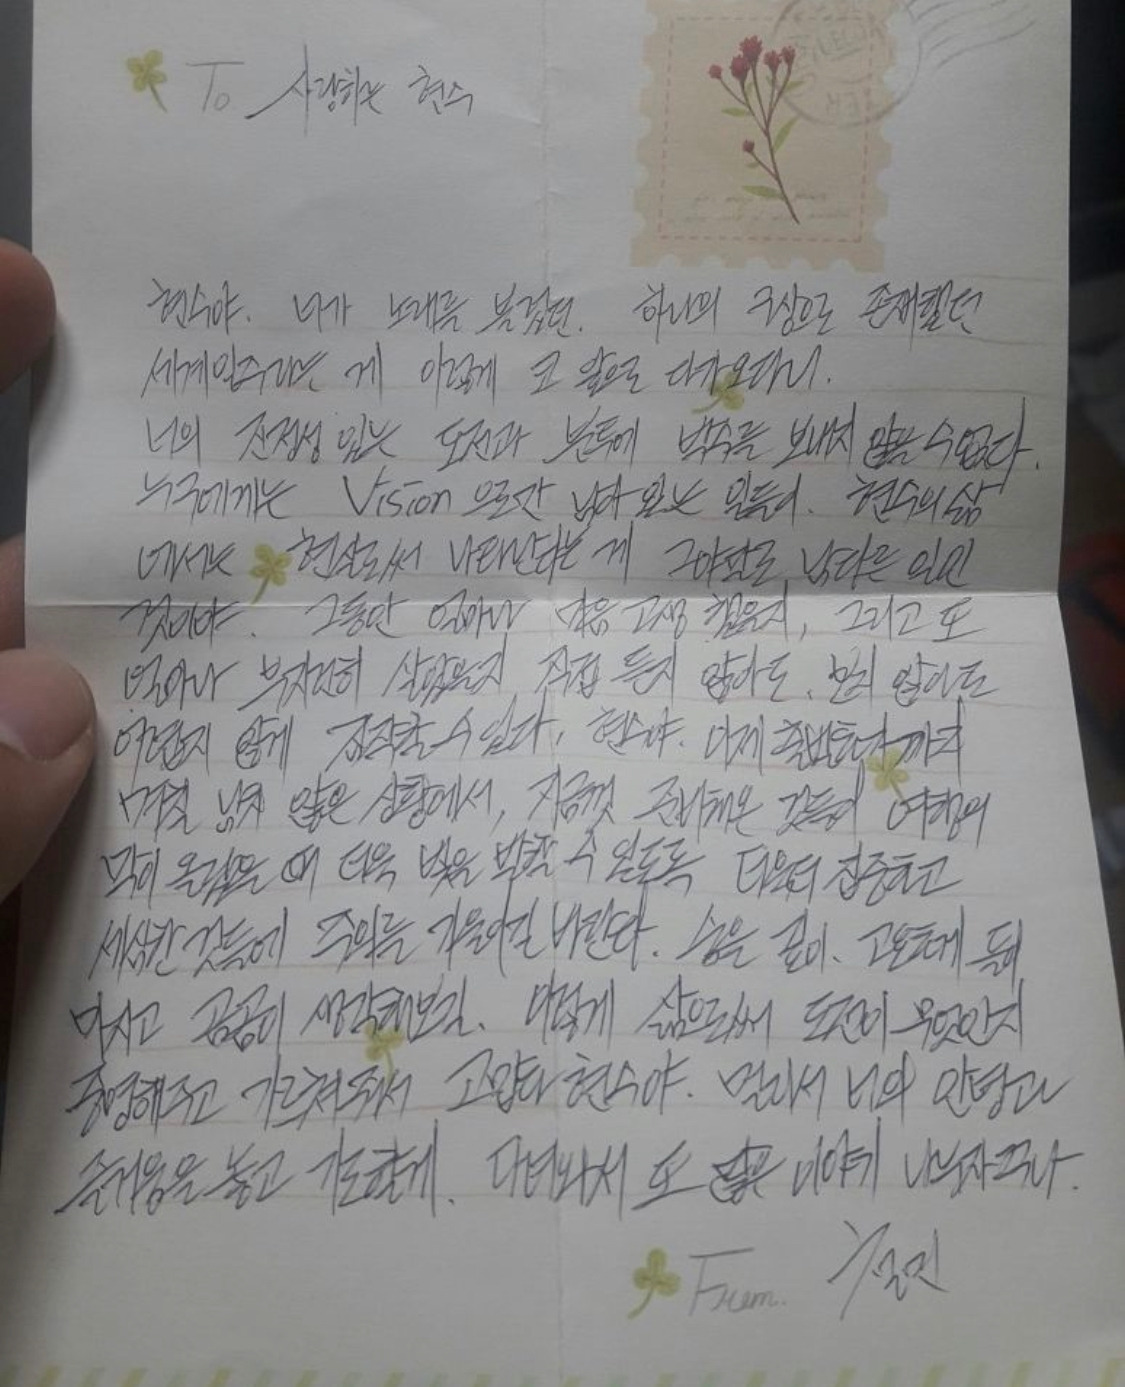 To 사랑하는 현수
현수야. 너가 노래를 불렀던. 하나의 구상으로 존재했던
세계일주라는 게 이렇게 코 앞으로 다가오다니.
너의 진정성 있는 도전과 분투에 박수를 보내지 않을 수 없다.
누구에게는 Vision 으로만 남아 있는 일들이. 현수의 삶
에서는 현실로써 나타난다는 게 그야말로 남다른
것이야. 그동안 얼마나 많은 고생 했을지, 그리고 또
얼마나 부지런히 살았을지 직접 듣지 않아도. 보지 않아도
어렵지 않게 짐작할 수 있다. 현수야. 이제 출발일까지
며칠 남지 않은 상황에서, 지금껏 준비해온 것들이 여행의
막이 올랐을 때 더욱 빛을 발할 수 있도록 더욱더 집중하고
세심한 것들에 주의를 기울이길 바란다. 숨을 깊이. 고요하게 들이
마시고 곰곰이 생각해보길. 이렇게 삶으로써 도전이 무엇인지
증명해주고 가르쳐줘서 고맙다 현수야. 멀리서 너의 안녕과
즐거움을 놓고 기도할게. 다녀와서 또 많은 이야기 나누자꾸나.
From.